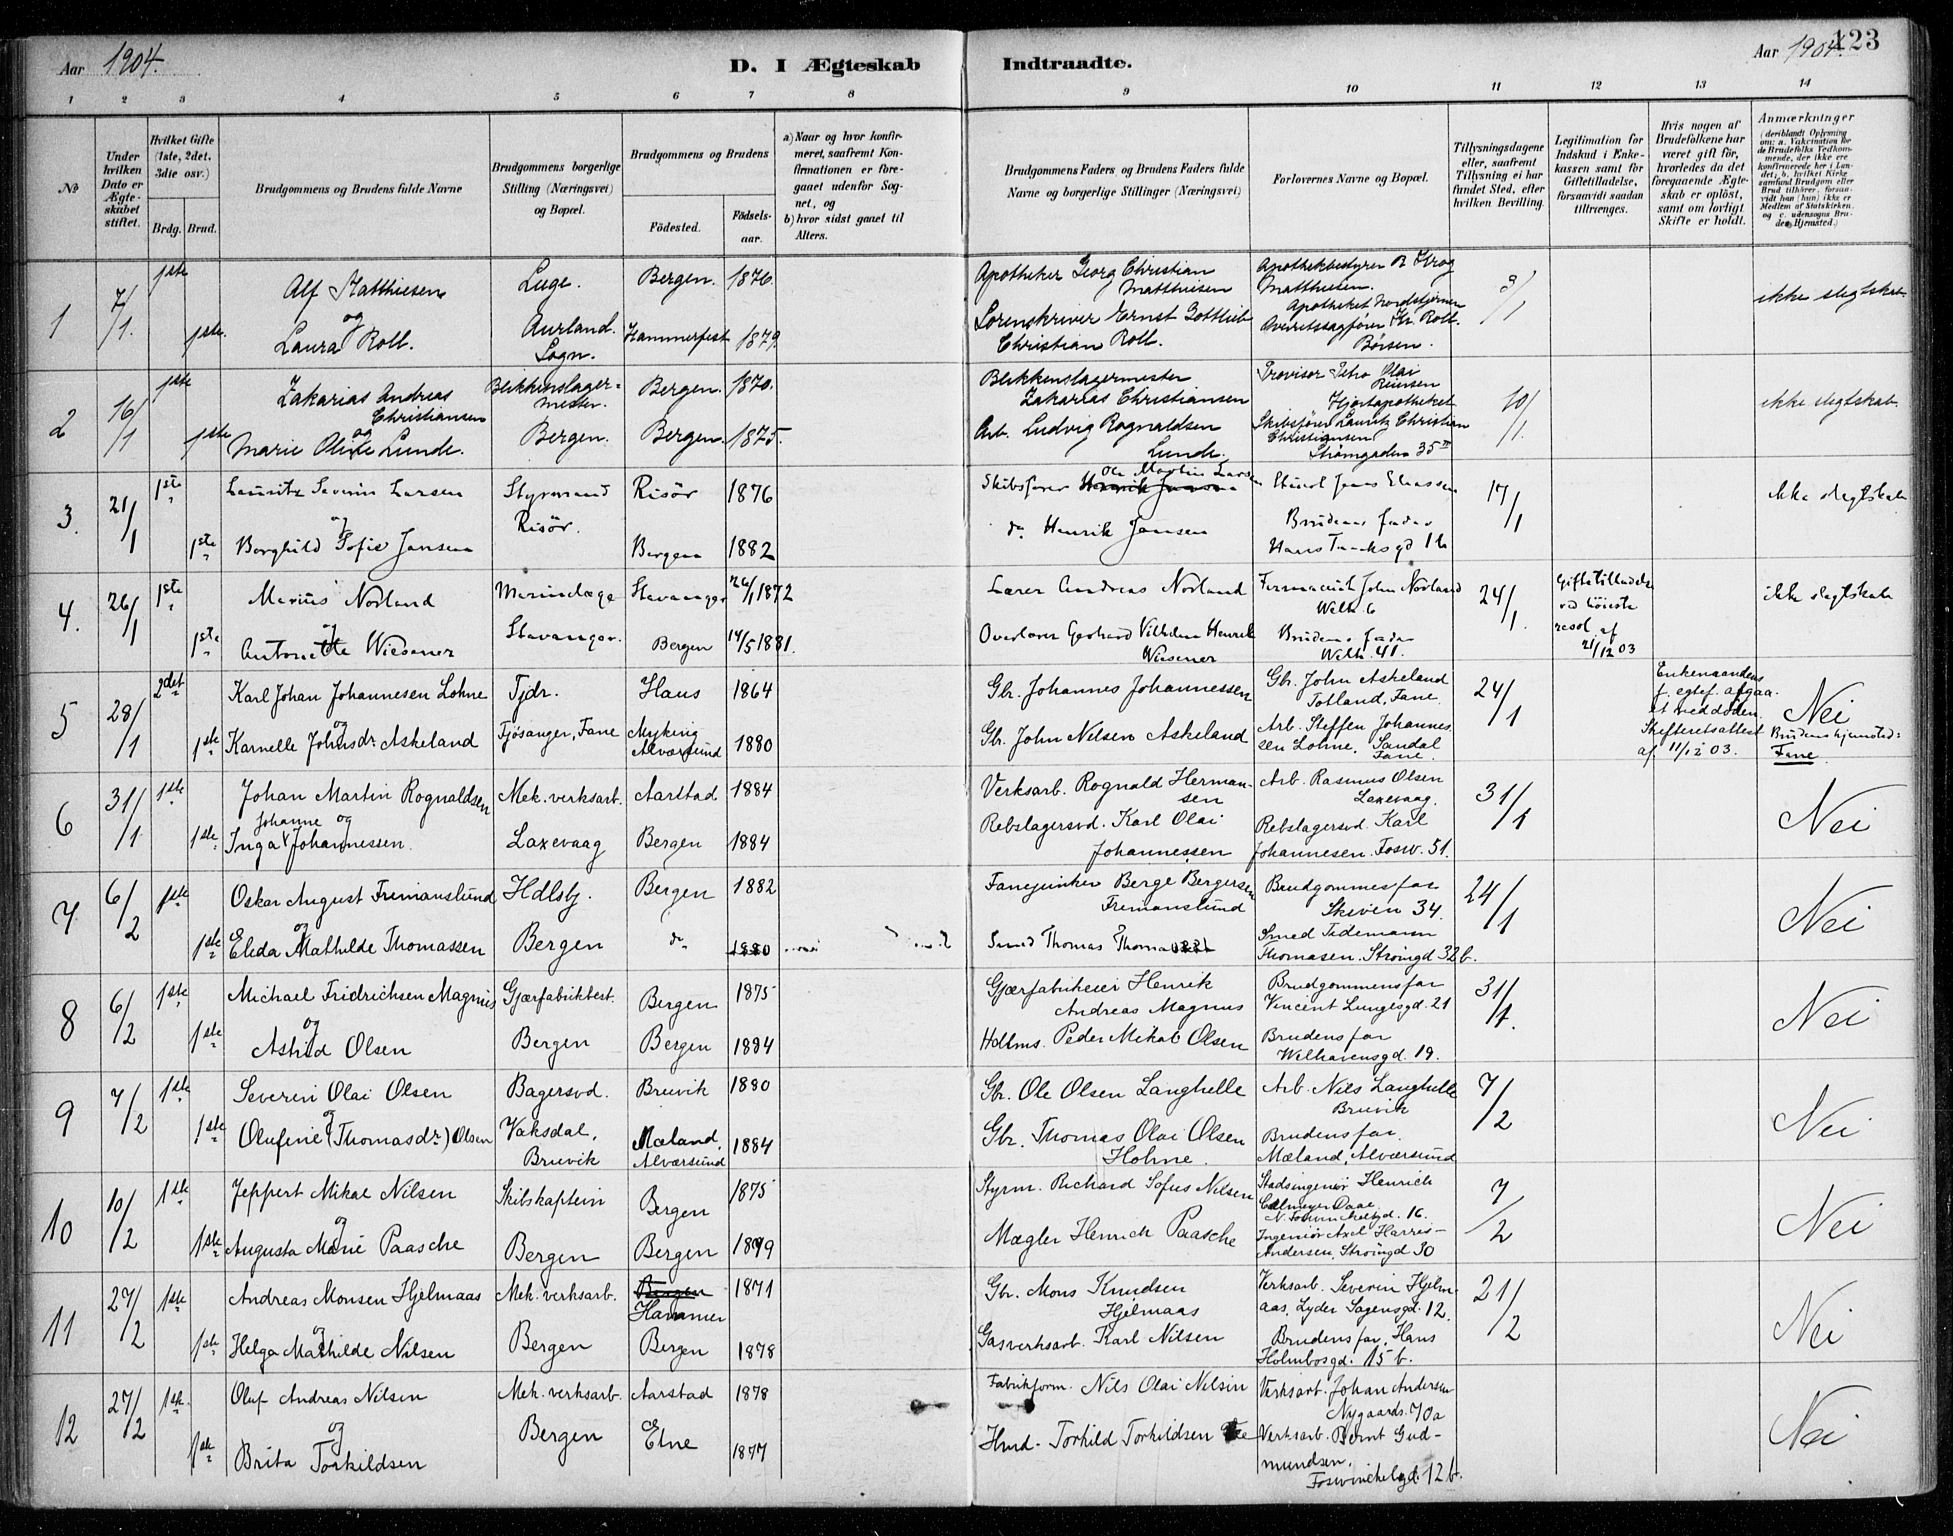 Aar 1904.
D. I Ægteskab Indtraadte.
Aar 1904.
123
1 2 3 4 5 6 7 8 9 10 11 12 13 14
№
Under hvilken Dato er Ægteskabet stiftet.
Hvilket Gifte (1ste, 2det, 3die osv.)
Brdg. Brud.
Brudgommens og Brudens fulde Navne
Brudgommens borgerlige Stilling (Næringsvei) og Bopæl.
Brudgommens og Brudens
Fødested.
Fødselsaar.
a) Naar og hvor konfirmeret, saafremt Konfirmationen er foregaaet udenfor Sognet, og
b) hvor sidst gaaet til Alters.
Brudgommens Faders, og Brudens Faders fulde Navne og borgerlige Stillinger (Næringsvei)
Forlovernes Navne og Bopæl.
Tillysningsdagene eller, saafremt Tillysning ei har fundet Sted, efter hvilken Bevilling.
Legitimation for Indskud i Enkekassen samt for Giftetilladelse, forsaavidt saadan tiltrænges.
Hvis nogen af Brudefolkene har været gift før, hvorledes da det foregaaende Ægteskab er opløst, samt om lovligt Skifte er holdt.
Anmærkninger (deriblandt Oplysning om: a. Vakcination for de Brudefolks Vedkommende, der ikke ere konfirmerede her i Landet; b. hvilket Kirkesamfund Brudgom eller Brud tilhører, forsaavidt han (hun) ikke er Medlem af Statskirken, og c. udensogns Brudes Hjemsted.)
1 7/1. 1ste Alf Matthiesen Læge. Bergen. 1876. Apotheker Georg Christian Matthiesen Apothekbestyrer B. Krog Matthiesen. Apotheket Nordstjernen 3/1 ikke slegtskab.
og
1ste. Laura Roll. Aurland. Sogn. Hammerfest 1879. Sorenskriver Ernst Gottlieb Christian Roll. Overretssagfører Kr. Roll. Børsen.
2 16/1 1ste Zakarias Andreas Christiansen Blikkenslagermester. Bergen. 1870. Blikkenslagermester Zakarias Christiansen Provisor Petro Olai Reinsen Hjortapotheket 10/1. ikke slegtskab.
og
1ste Marie Oline Lunde. Bergen. Bergen. 1875. Arb. Ludvig Rognaldsen Lunde. Skibsfører Lauritz Christian Christiansen Strømgaden 35 II
3. 21/1 1ste Lauritz Severin Larsen Styrmand Risör 1876 Skibsfører Ole Martin Larsen Jens Eliassen 17/1 ikke slegtskab
og
1ste Borghild Sofie Jansen Risör. Bergen 1882 do Henrik Jansen Brudens fader Hans Tanks gd 16
4. 26/1 1ste Marius Norland Marinelæge Stavanger 26/1 1872 Lærer Andreas Norland Farmaceut John Norland Welh. 6 24/1. Giftetilladelse ved høieste resol. af 21/12 03 ikke slegtskab
og
1ste Antonette Wiesener Stavanger. Bergen 14/5 1881. Overlærer Gerhard Vilhelm Henrik Wiesener Brudens fader Welh. 41.
5 28/1 2det Karl Johan Johannesen Lohne Tjdr. Haus 1864 Gbr. Johannes Johannessen Gbr. John Askeland Totland, Fane 24/1 Enkemandens f. egtef. afgaaet ved døden. Skifteretsattest af 11/12 03. Nei
og
1ste Karnelle Johnsdr. Askeland Fjøsanger, Fane Myking Alversund 1880 Gbr. John Nilsen Askeland Arb. Steffen Johannessen Lohne, Sandal Fane. Brudens hjemsted: Fane
6 31/1 1ste Johan Martin Rognaldsen Mek. verksarb. Aarstad 1884 Verksarb. Rognald Hermansen Arb. Rasmus Olsen Laxevaag. 31/1 Nei
og
1ste Inga Johanne Johannessen. Laxevaag Bergen 1884 Rebslagersvd. Karl Olai Johannessen Rebslagersvd. Karl Johannesen. Fosw. 51.
7 6/2 1ste Oskar August Fremanslund Hdlsbj. Bergen 1882 Fanejunker Berge Bergersen Fremanslund Brudgommes far Skiven 34. 24/1 Nei
og
1ste Elida Mathilde Thomassen Bergen do 1880 Smed Thomas Thomassen Smed Tidemann Thomasen. Strømgd 32 b.
8 6/2 1ste Michael Fridrichsen Magnus Gjærfabrikbest. Bergen 1875 Gjærfabrikeier Henrik Andreas Magnus Brudgommens far Vincent Lungesgd. 21 31/1. Nei
og
1ste Astrid Olsen Bergen Bergen 1884 Hdlms. Peder Mikal Olsen Brudens far Welhavensgd. 19.
9 7/2 1ste Severin Olai Olsen Bagersvd. Bruvik 1880 Gbr. Ole Olsen Langhelle Arb. Nils Langhelle Bruvik 7/2 Nei
og
1ste Olufine (Thomasdr.) Olsen Vaksdal, Bruvik Mæland, Alværsund 1884 Gbr. Thomas Olai Olsen Hohne. Brudens far. Mæland, Alværsund
10 10/2 1ste Jeppert Mikal Nilsen Skibskaptein Bergen 1875 Styrm. Richard Sofus Nilsen Stadsingeniør Henrich Calmeyer Daae N. Foswinckelsgd. 16. 7/2 Nei
og
1ste Augusta Marie Paasche Bergen Bergen 1879 Mægler Henrich Paasche Ingeniør Axel Harris-Andersen, Strømgd 30
11 27/2 1ste Andreas Monsen Hjelmaas Mek. verksarb. Bergen Hammer 1871 Gbr. Mons Knudsen Hjelmaas Verksarb. Severin Hjelmaas, Lyder Sagensgd. 12. 21/2 Nei
og
1ste Helga Mathilde Nilsen Bergen Bergen 1878 Gasverksarb. Karl Nilsen Brudens far, Hans Holmboesgd. 15 b.
12 27/2 1ste. Oluf Andreas Nilsen Mek. verksarb. Aarstad 1878 Fabrikform. Nils Olai Nilsen Verksarb. Johan Andersen Nygaards. 70a Nei
og
1ste Brita Torkildsen Bergen Etne 1877 Hmd. Torkild Torkildsen Verksarb. Bernt Gudmundsen, Foswinckelsgd. 12 b.